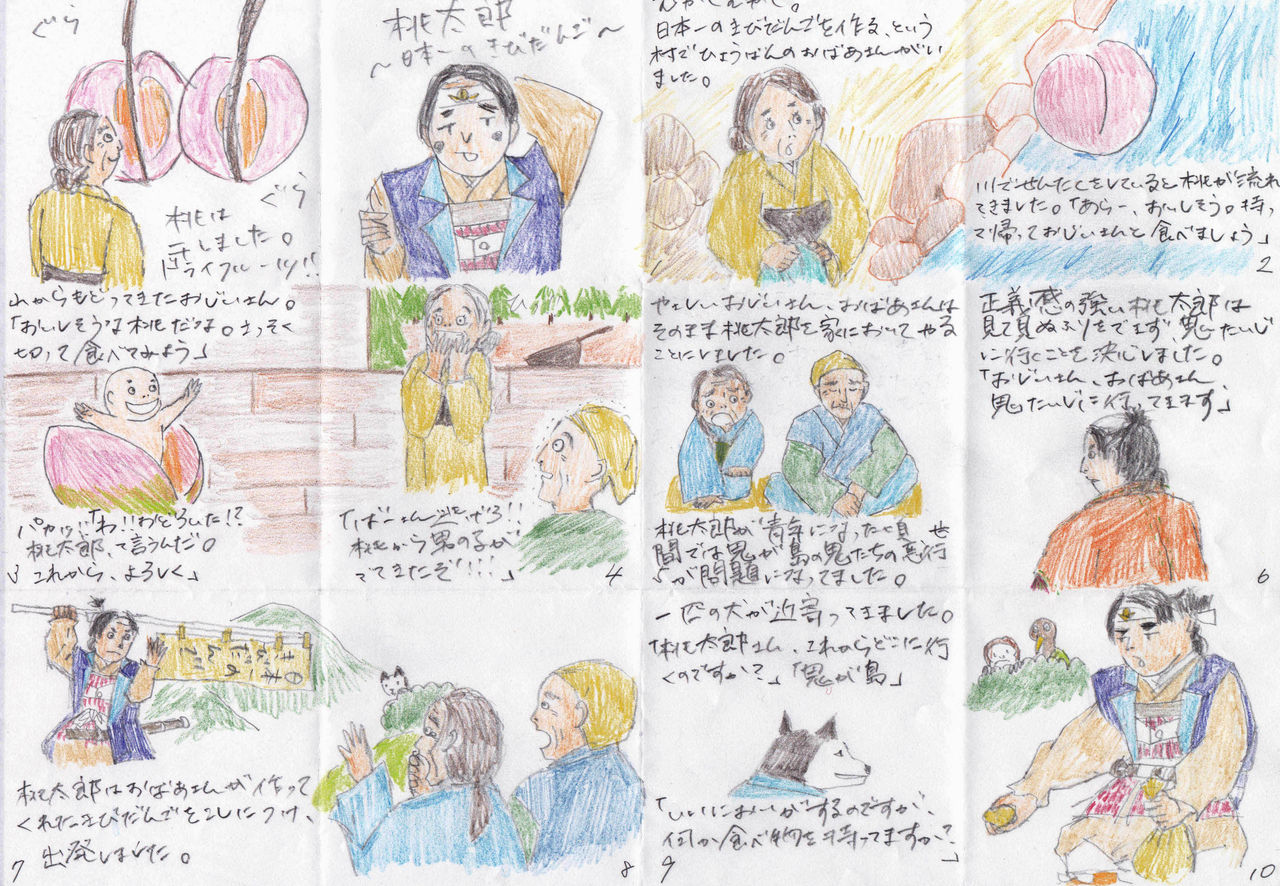 ぐら
ぐら
桃は
干しました。
ドライフルーツ!!
桃太郎
〜日本一のきびだんご〜
むかしむかし。
日本一のきびだんごを作る、という
村でひょうばんのおばあさんがい
ました。
1
川でせんたくをしていると桃が流れ
てきました。「あらー、おいしそう。持っ
て帰っておじいさんと食べましょう」
2
れからもどってきたおじいさん。
「おいしそうな桃だな。さっそく
切って食べてみよう」
パカッ!!「わ!!おどろいた!?
桃太郎、って言うんだ。
3 これから、よろしく」
「ばーさん逃げろ!!
桃から男の子が
でてきたぞ!!!」
4
やさしいおじいさん、おばあさんは
そのまま桃太郎を家においてやる
ことにしました。
桃太郎が青年になった頃 世
間では鬼が島の鬼たちの悪行
5 が問題になってました。
正義感の強い桃太郎は
見て見ぬふりをできず、鬼たいじ
に行くことを決心しました。
「おじいさん、おばあさん、
鬼たいじに行ってきます」
6
桃太郎はおばあさんが作って
くれたきびだんごをこしにつけ、
7 出発しました。
8
一匹の犬が近寄ってきました。
「桃太郎さん、これからどこに行
くのですか?」「鬼が島」
「いいにおいがするのですが、
何か食べ物を持ってますか?」
9
10